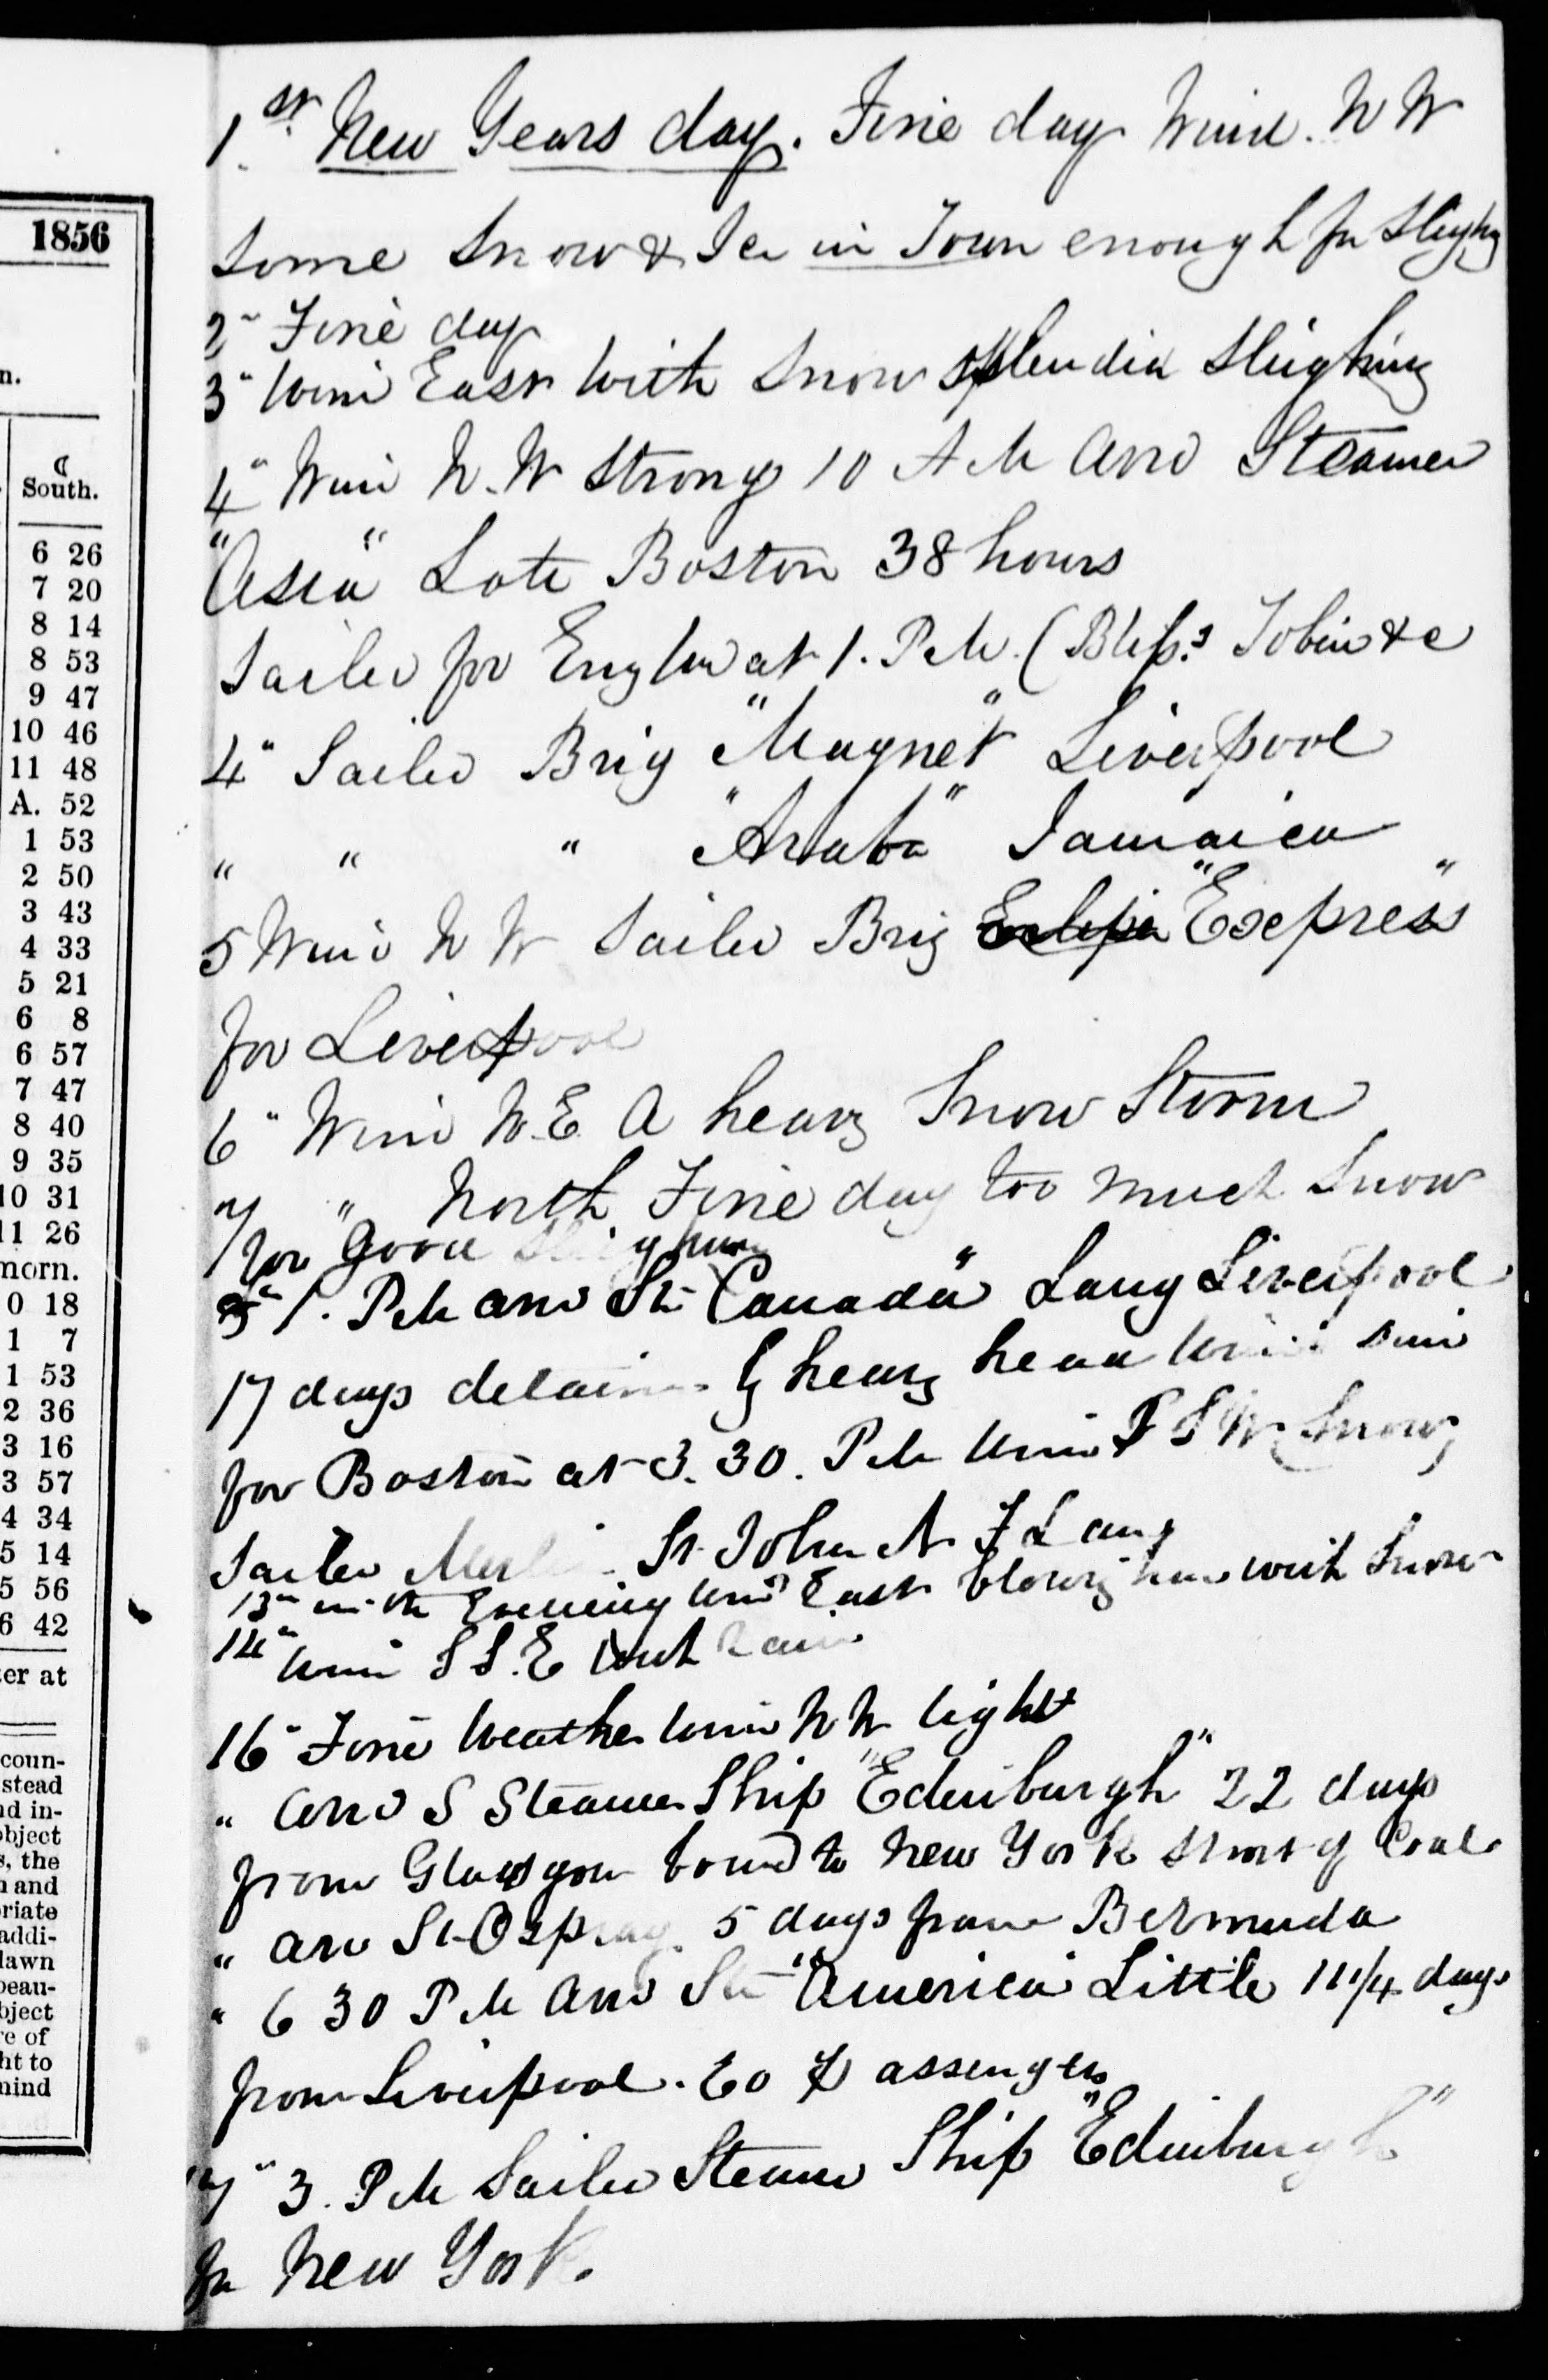 1856
n.
South.
6 26
7 20
8 14
8 53
9 47
10 46
11 48
A. 52
1 53
2 50
3 43
4 33
5 21
6 8
6 57
7 47
8 40
9 35
10 31
11 26
morn.
0 18
1 7
1 53
2 36
3 16
3 57
4 34
5 14
5 56
6 42
ter at
coun-
stead
nd in-
bject
s, the
n and
riate
addi-
lawn
beau-
bject
re of
ht to
mind
1st New Years day. Fine day Wind. N W
Some Snow & Ice in Town enough for Sleighg
2" Fine day
3" Wind East with Snow splendid Sleighing
4" Wind N. W Strong 10 A M Arrd Steamer
"Asia" Lott Boston 38 hours
Sailed for England at 1. P M. ( Tobin &c
4" Sailed Brig "Magnet" Liverpool
" " " "Jamaica
5 Wind N W Sailed Brig "Express"
for Liverpool
6" Wind N. E. A heavy Snow Storm
7 " North Fine day too much Snow
for good Sleighing
1. P M arrd Str "Canada" Lang Liverpool
17 days detained by heavy head wind
for Boston at 3. 30. P M Wind S W Snowy
Sailed Merlin St. John N F L
13" in the Evening Wind East blowing hard with Snow
14" Wind S S. E with Rain
16" Fine Weather Wind N W light
" Arrd S Steamer Ship "Edinburgh" 22 days
from Glasgow bound to New York short of Coal
" arrd St Ospray 5 days from Bermuda
" 6 30 P M Arrd Str "America" Little 11 1/4 days
from Liverpool. 60 Passengers
17" 3. P M Sailed Steam Ship "Edinburgh"
for New York.